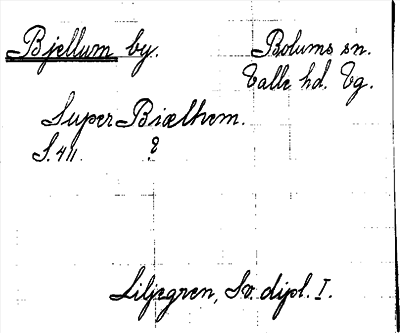 Bjellum by.
Bolums sn.
Valle hd. Vg.
Super Biælhem.
S. 411. ?
Liljegren, Sv. dipl. I.